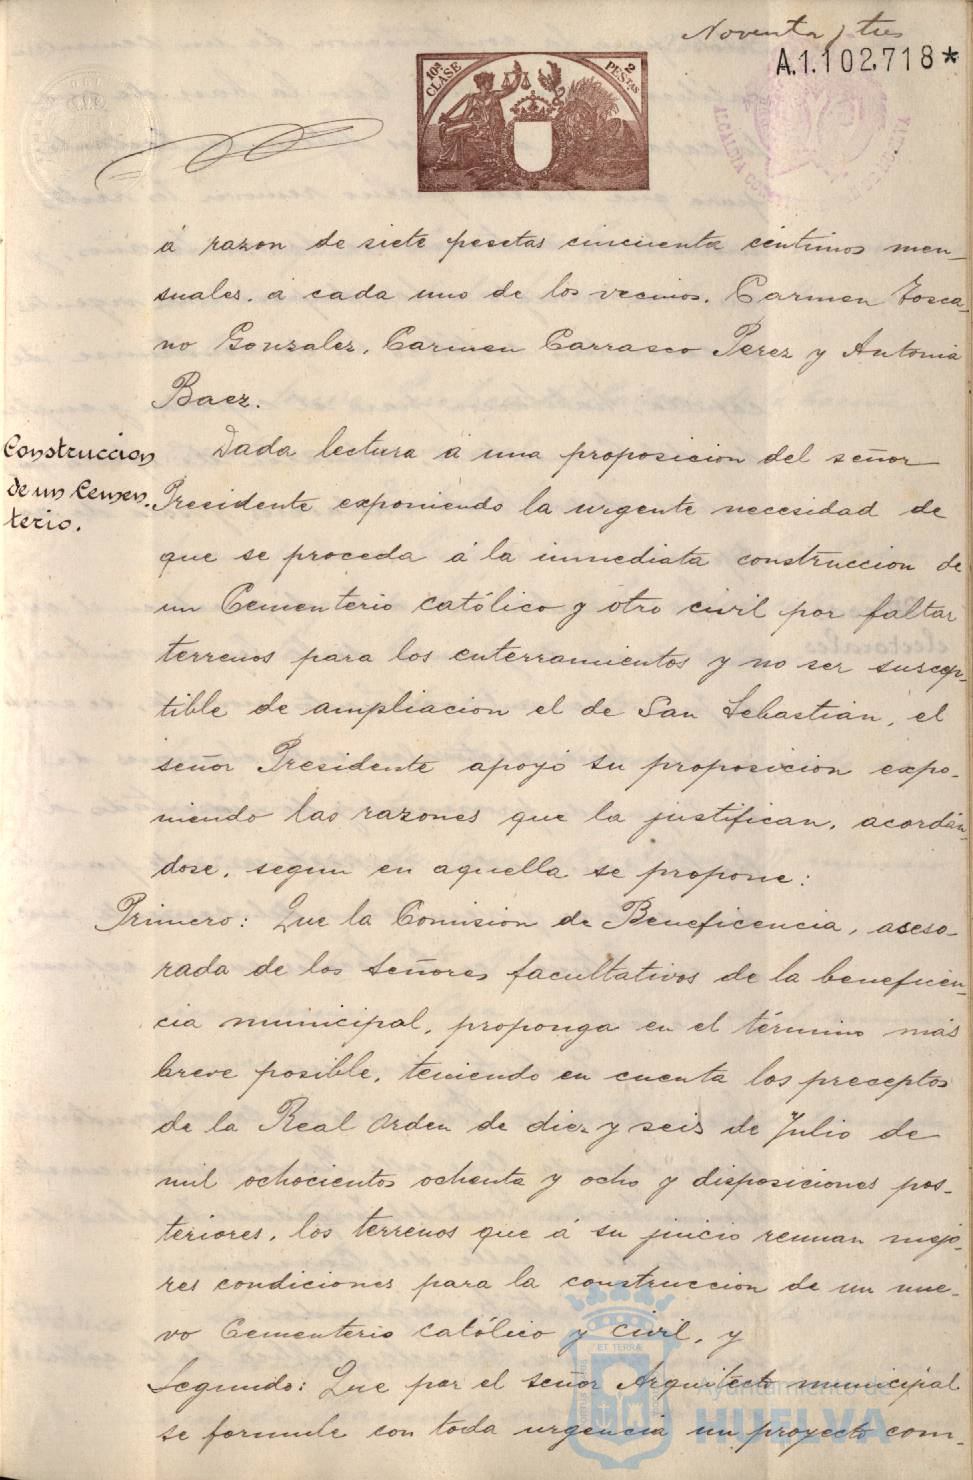 Noventa y tres
A.1.102.718*
10ª CLASE 2 PESTAS
á razon de siete pesetas cincuenta céntimos men-
suales, a cada uno de los vecinos, Carmen Tosca-
no Gonzalez, Carmen Carrasco Perez y Antonia
Baez.
Construccion
de un Cemen-
terio.
Dada lectura á una proposicion del señor
Presidente exponiendo la urgente necesidad de
que se proceda á la inmediata construccion de
un Cementerio católico y otro civil por faltar
terrenos para los enterramientos y no ser suscep-
tible de ampliacion el de San Sebastián, el
señor Presidente apoyó su proposicion expo-
niendo las razones que la justifican, acordán-
dose, segun en aquella se propone:
Primero: Que la Comisión de Beneficencia, aseso-
rada de los señores facultativos de la beneficen-
cia municipal, proponga en el término más
breve posible, teniendo en cuenta los preceptos
de la Real Orden de diez y seis de Julio de
mil ochocientos ochenta y ocho y disposiciones pos-
teriores, los terrenos que á su juicio reunan mejo-
res condiciones para la construccion de un nue-
vo Cementerio católico y civil, y
Segundo: Que por el señor Arquitecto municipal
se formule con toda urgencia un proyecto com-
ET TERRA
Ayuntamiento de
HUELVA